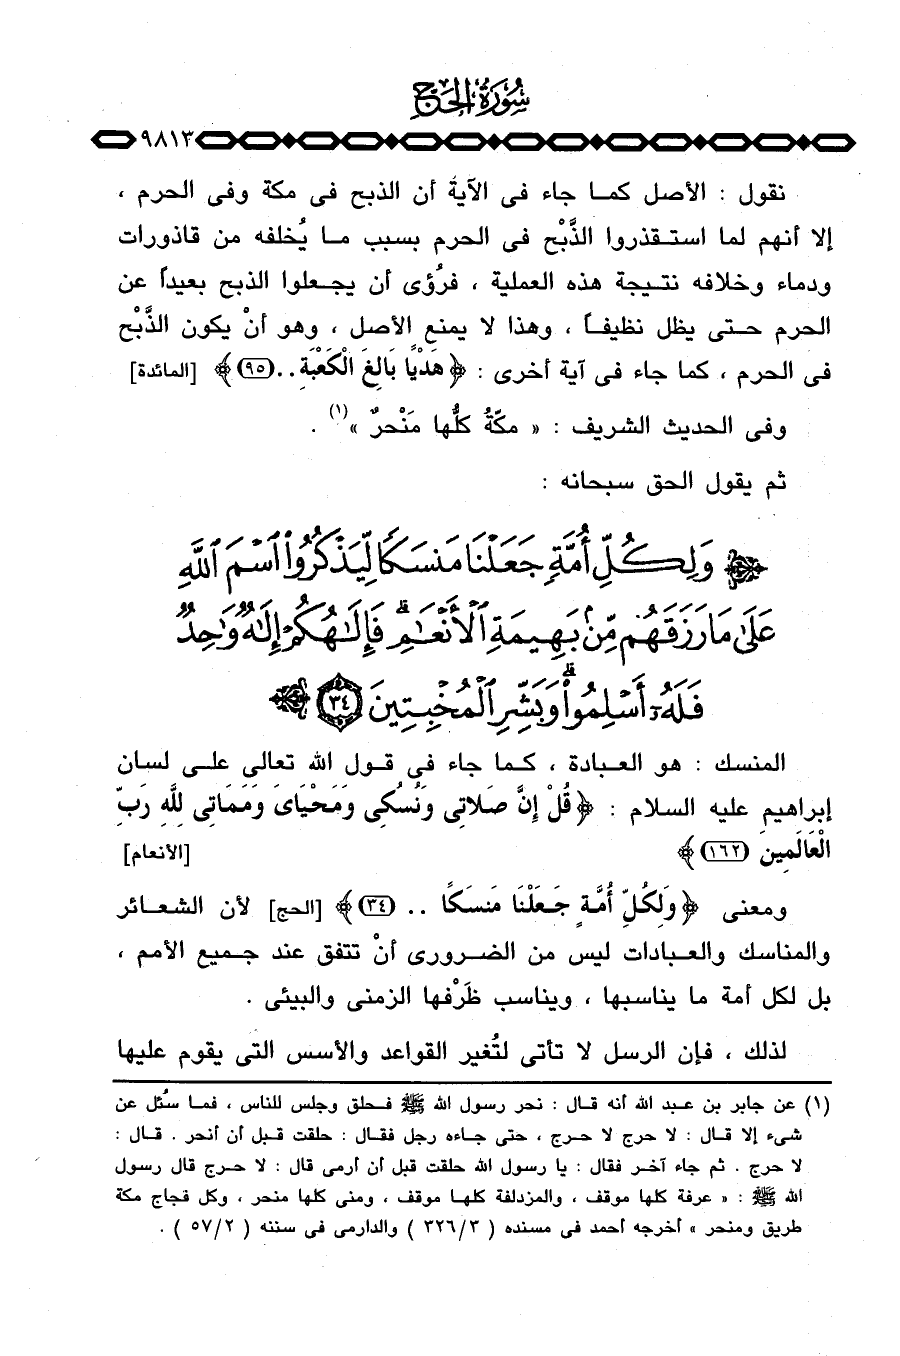 سُورَةُ الحَجّ
٩٨١٣
نقول : الأصل كما جاء فى الآية أن الذبح فى مكة وفى الحرم ،
إلا أنهم لما استقذروا الذَّبْح فى الحرم بسبب ما يُخلفه من قاذورات
ودماء وخلافه نتيجة هذه العملية ، فرُؤى أن يجعلوا الذبح بعيداً عن
الحرم حتى يظل نظيفاً ، وهذا لا يمنع الأصل ، وهو أنْ يكون الذَّبْح
فى الحرم ، كما جاء فى آية أخرى : ﴿ هَدْيًا بَالِغَ الْكَعْبَةِ .. (٩٥) ﴾ [المائدة]
وفى الحديث الشريف : « مكّةُ كلُّها مَنْحرٌ »(١) .
ثم يقول الحق سبحانه :
﴿ وَلِكُلِّ أُمَّةٍ جَعَلْنَا مَنسَكًا لِّيَذْكُرُوا۟ ٱسْمَ ٱللَّهِ
عَلَىٰ مَا رَزَقَهُم مِّنۢ بَهِيمَةِ ٱلْأَنْعَـٰمِ ۗ فَإِلَـٰهُكُمْ إِلَـٰهٌ وَٰحِدٌ
فَلَهُۥٓ أَسْلِمُوا۟ ۗ وَبَشِّرِ ٱلْمُخْبِتِينَ ٣٤ ﴾
المنسك : هو العبادة ، كما جاء فى قول الله تعالى على لسان
إبراهيم عليه السلام : ﴿ قُلْ إِنَّ صَلاتِي وَنُسُكِي وَمَحْيَايَ وَمَمَاتِي لِلَّهِ رَبِّ
الْعَالَمِينَ (١٦٢) ﴾ [الأنعام]
ومعنى ﴿ وَلِكُلِّ أُمَّةٍ جَعَلْنَا مَنسَكًا .. (٣٤) ﴾ [الحج] لأن الشعائر
والمناسك والعبادات ليس من الضرورى أنْ تتفق عند جميع الأمم ،
بل لكل أمة ما يناسبها ، ويناسب ظَرْفها الزمنى والبيئى .
لذلك ، فإن الرسل لا تأتى لتُغير القواعد والأسس التى يقوم عليها
(١) عن جابر بن عبد الله أنه قال : نحر رسول الله ﷺ فحلق وجلس للناس ، فما سُئل عن
شىء إلا قال : لا حرج لا حرج ، حتى جاءه رجل فقال : حلقت قبل أن أنحر . قال :
لا حرج . ثم جاء آخر فقال : يا رسول الله حلقت قبل أن أرمى قال : لا حرج قال رسول
الله ﷺ : « عرفة كلها موقف ، والمزدلفة كلها موقف ، ومنى كلها منحر ، وكل فجاج مكة
طريق ومنحر » أخرجه أحمد فى مسنده ( ٣٢٦/٣ ) والدارمى فى سننه ( ٥٧/٢ ) .